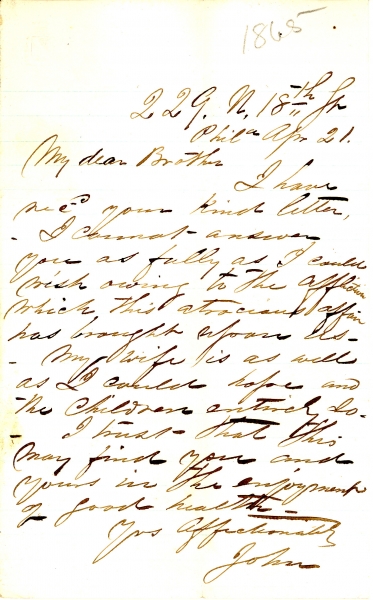 1865
229. N. 18th St
Phila Apr 21.
My dear Brother
I have
recd your kind letter,
- I cannot answer
you as fully as I could
wish owing to the affliction
which this atrocious affair
has brought upon us-
- My wife is as well
as I could hope and
the children entirely so-
- I trust that this
may find you and
yours in the enjoyment
of good health-
Yrs Affectionately
John